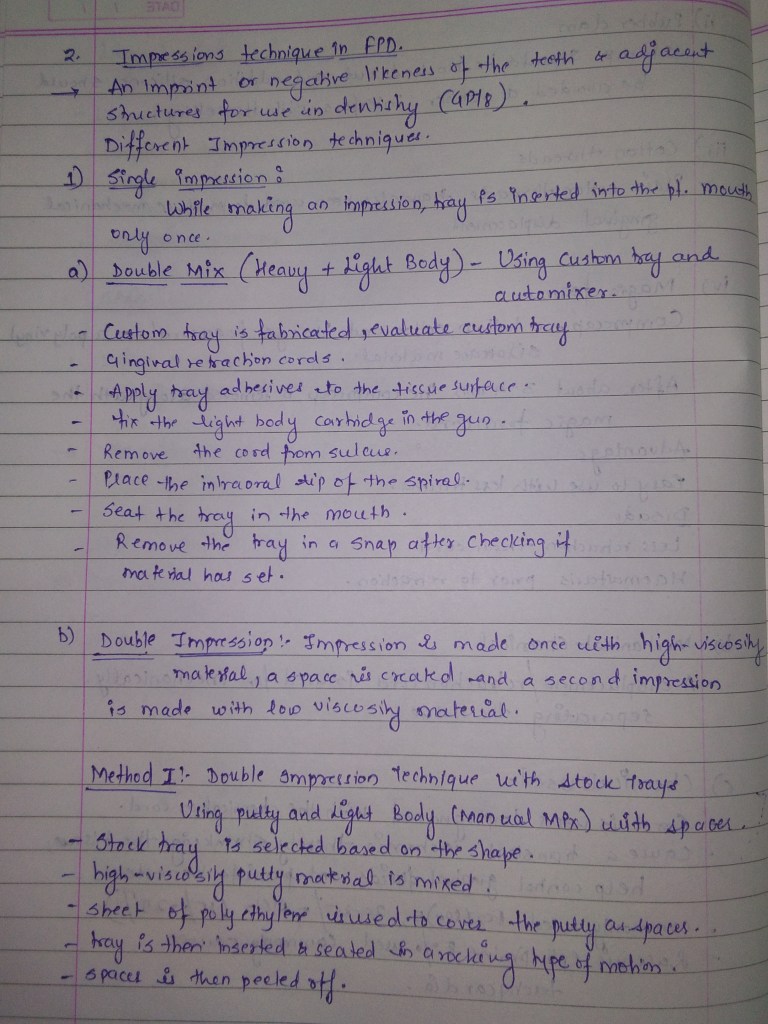 2. Impressions technique in FPD.
→ An imprint or negative likeness of the teeth & adjacent
structures for use in dentistry (GPT8).
Different Impression techniques.
1) Single impression:
While making an impression, tray is inserted into the pt. mouth
only once.
a) Double Mix (Heavy + Light Body) - Using Custom tray and
automixer.
- Custom tray is fabricated, evaluate custom tray
- Gingival retraction cords.
- Apply tray adhesives to the tissue surface.
- fix the light body cartridge in the gun.
- Remove the cord from sulcus.
- Place the intraoral tip of the spiral.
- Seat the tray in the mouth.
- Remove the tray in a snap after checking if
material has set.
b) Double Impression:- Impression is made once with high-viscosity
material, a space is created and a second impression
is made with low viscosity material.
Method I:- Double impression Technique with stock Trays
Using putty and Light Body (Manual Mix) with spacer.
- Stock tray is selected based on the shape.
- high-viscosity putty material is mixed.
- sheet of polyethylene is used to cover the putty as spacer.
- tray is then inserted & seated in a rocking type of motion.
- spacer is then peeled off.